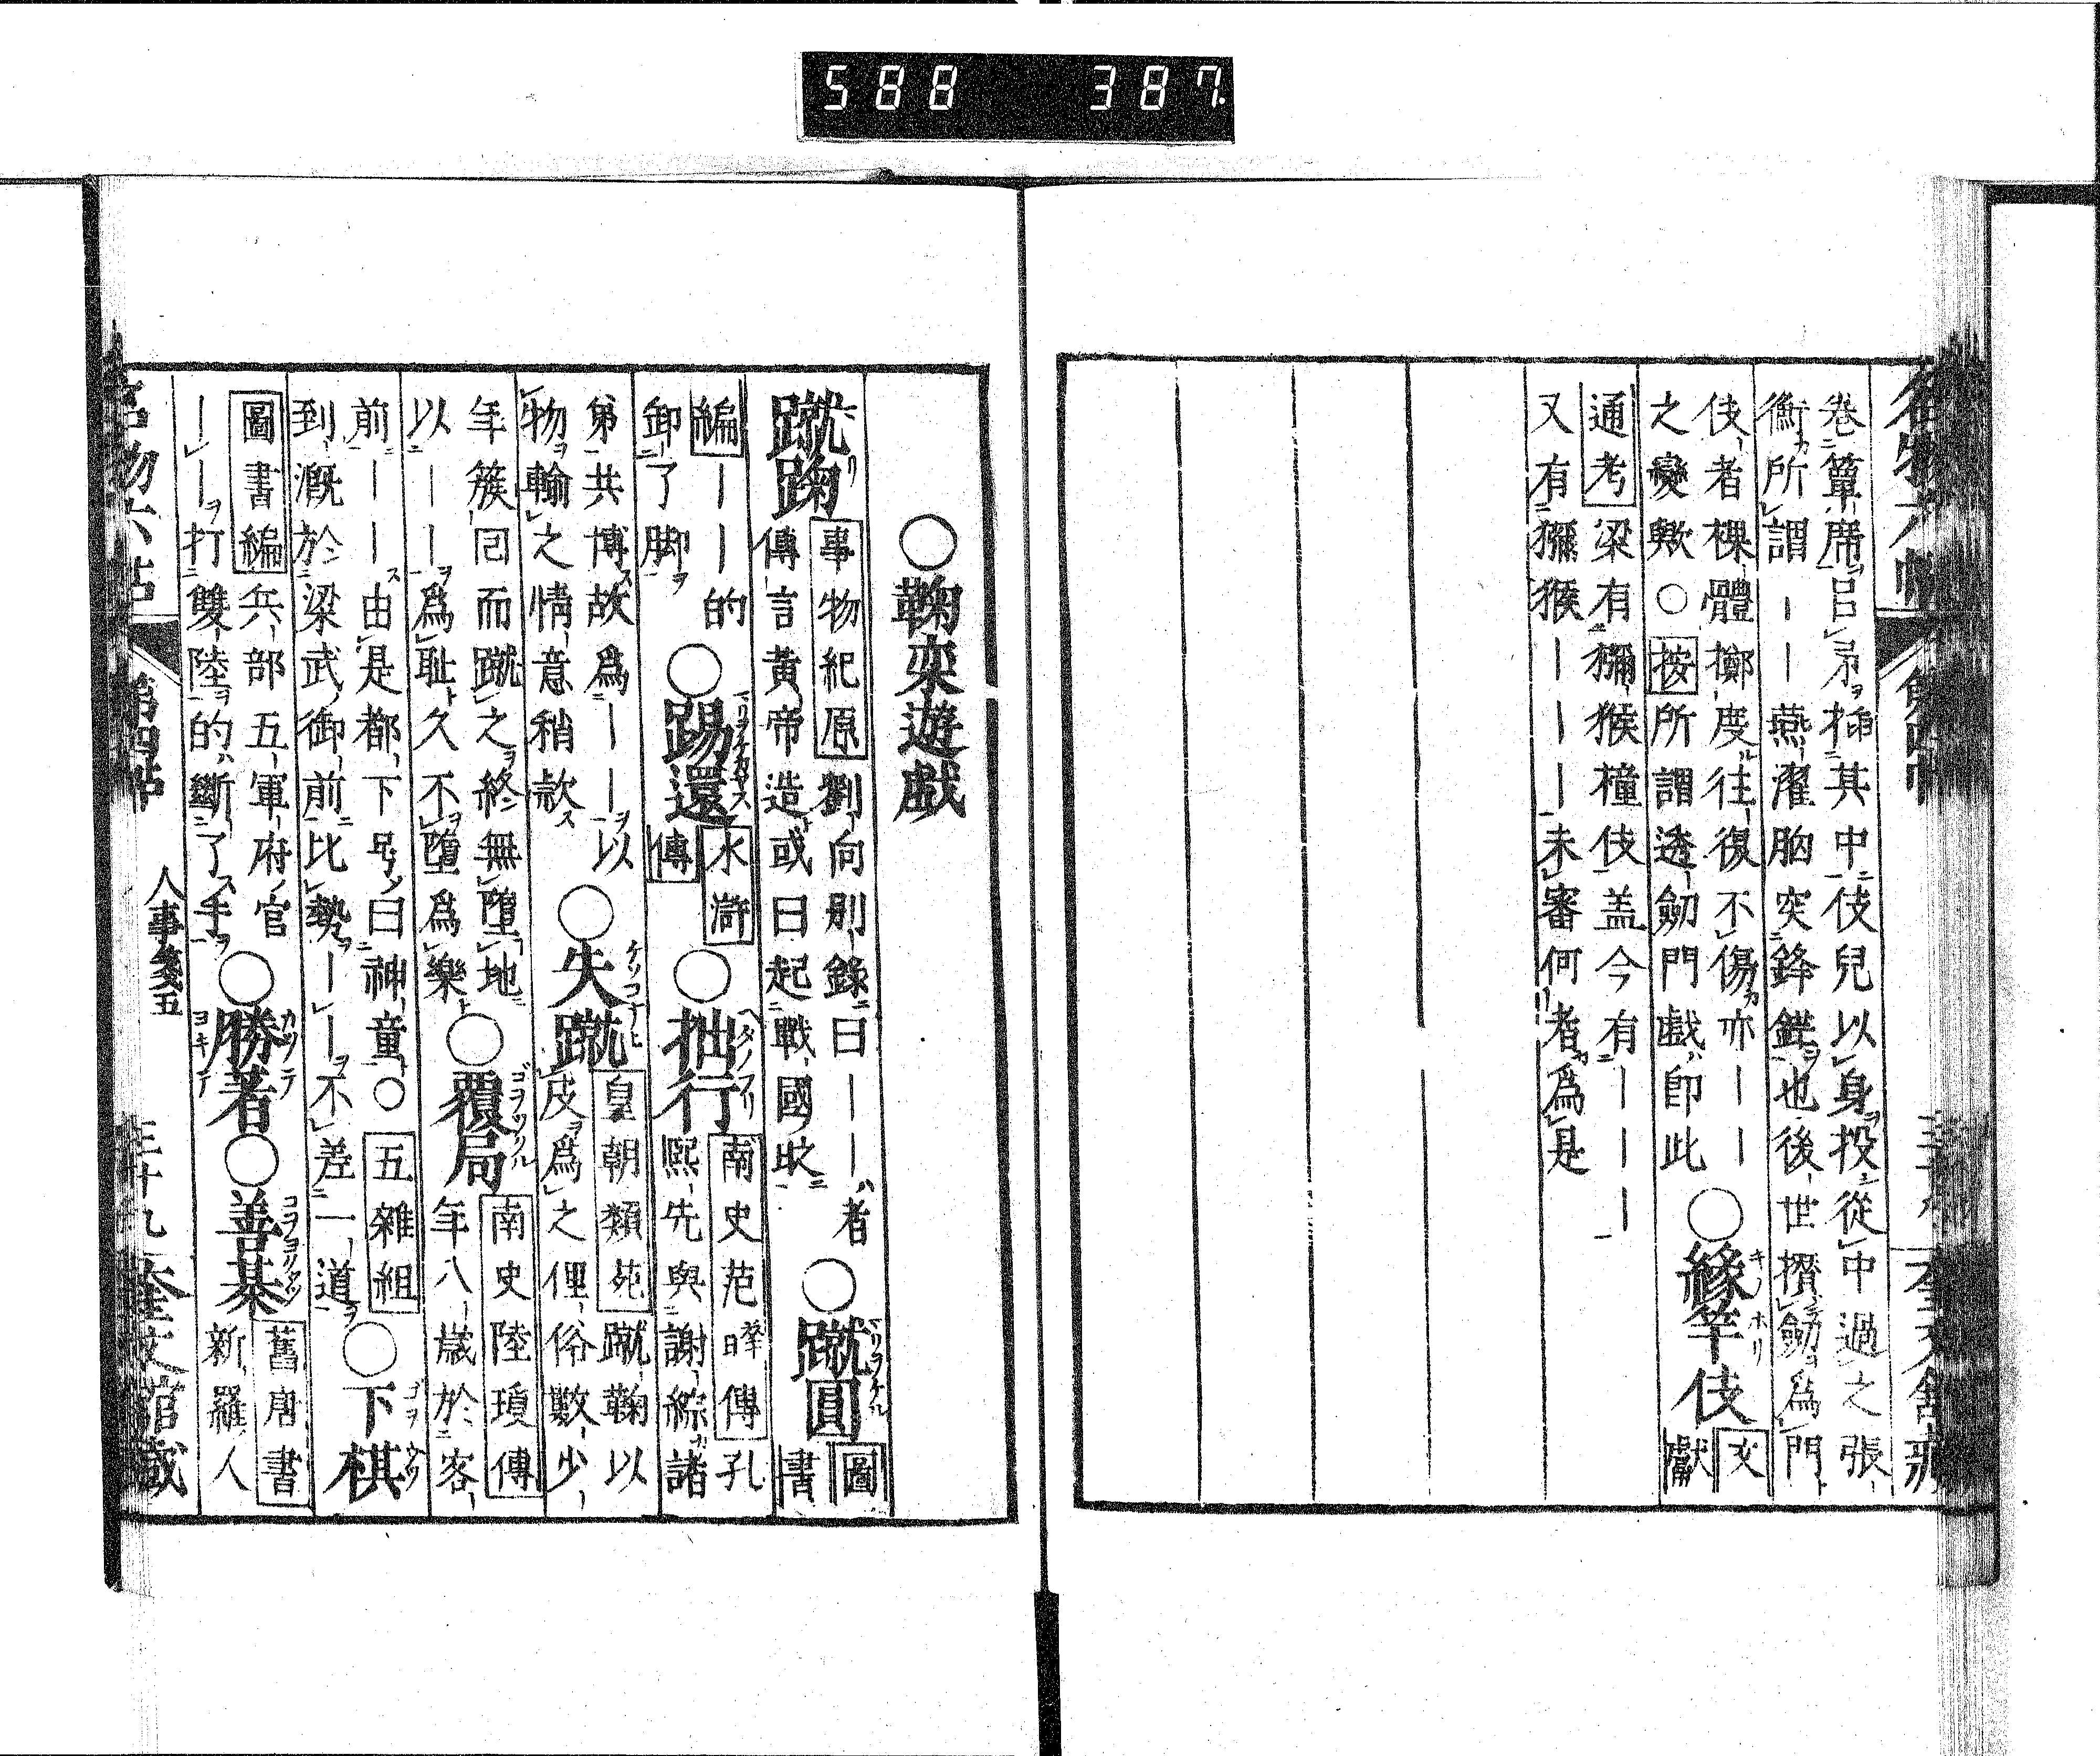 588 387.
卷簟席呂吊插其中伎兒以身投從中過之張
衡所謂——燕濯胸突鋒鋩也後世攢劒爲門
伎者裸體擲度往復不傷亦——
之變歟○按所謂透劒門戲卽此
○緣竿伎
文
獻
通考梁有獼猴橦伎盖今有————
又有獼猴————未審何者爲是
○鞠栾遊戲
蹴鞠
事物紀原劉向別錄曰——者
傳言黃帝造或曰起戰國時
○蹴圓
圖
書
編———的
卸了脚
○踢還
水滸
傳
○拙行
南史范曄傳孔
熙先與謝綜諸
第共博故爲——以
物輸之情意稍款
○失蹴
皇朝類苑蹴鞠以
皮爲之俚俗數少
年簇回而蹴之終無墮地
以——爲耻久不墮爲樂
○覆局
南史陸瓊傳
年八歲於客
前——由是都下号曰神童○五雜組
到漑於梁武御前比勢——不差一道
○下棋
圖書編兵部五軍府官
——打雙陸的斷了手
○勝著
○善棊
舊唐書
新羅人
人事箋五
三十九
奎文館藏